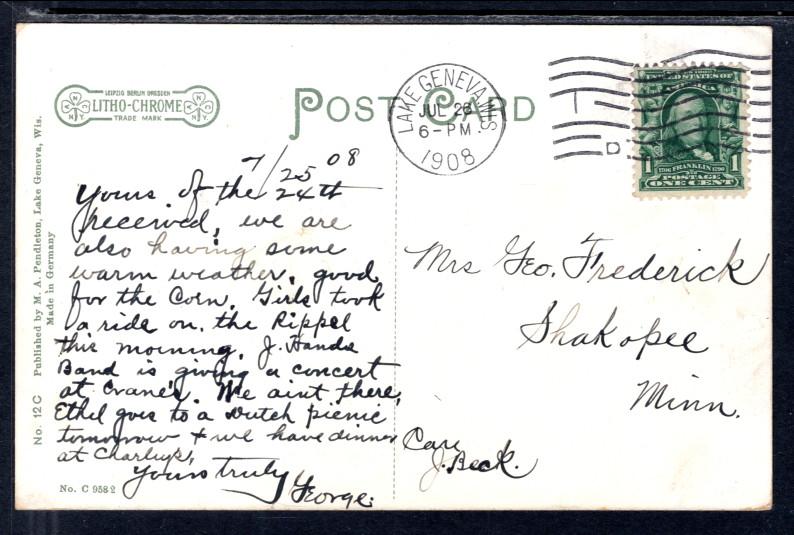 LEIPZIG BERLIN DRESDEN
LITHO-CHROME
TRADE MARK
POST CARD
LAKE GENEVA, WIS.
JUL 26
6-PM
1908
D
UNITED STATES OF
AMERICA
1 1706 FRANKLIN 1790 1
POSTAGE
ONE CENT
No. 12 C Published by M. A. Pendleton, Lake Geneva, Wis.
Made in Germany
7/25 08
Yours of the 24th
received, we are
also having some
warm weather, good
for the Corn. Girls took
a ride on. the Rippel
this morning. J. Hands
Band is giving a concert
at Crane's. We aint there,
Ethel goes to a Dutch picnic
tomorrow + we have dinner
at Charleys,
Yours truly
George.
Mrs Geo. Frederick
Shakopee
Minn.
Care
J. Beck.
No. C 9582